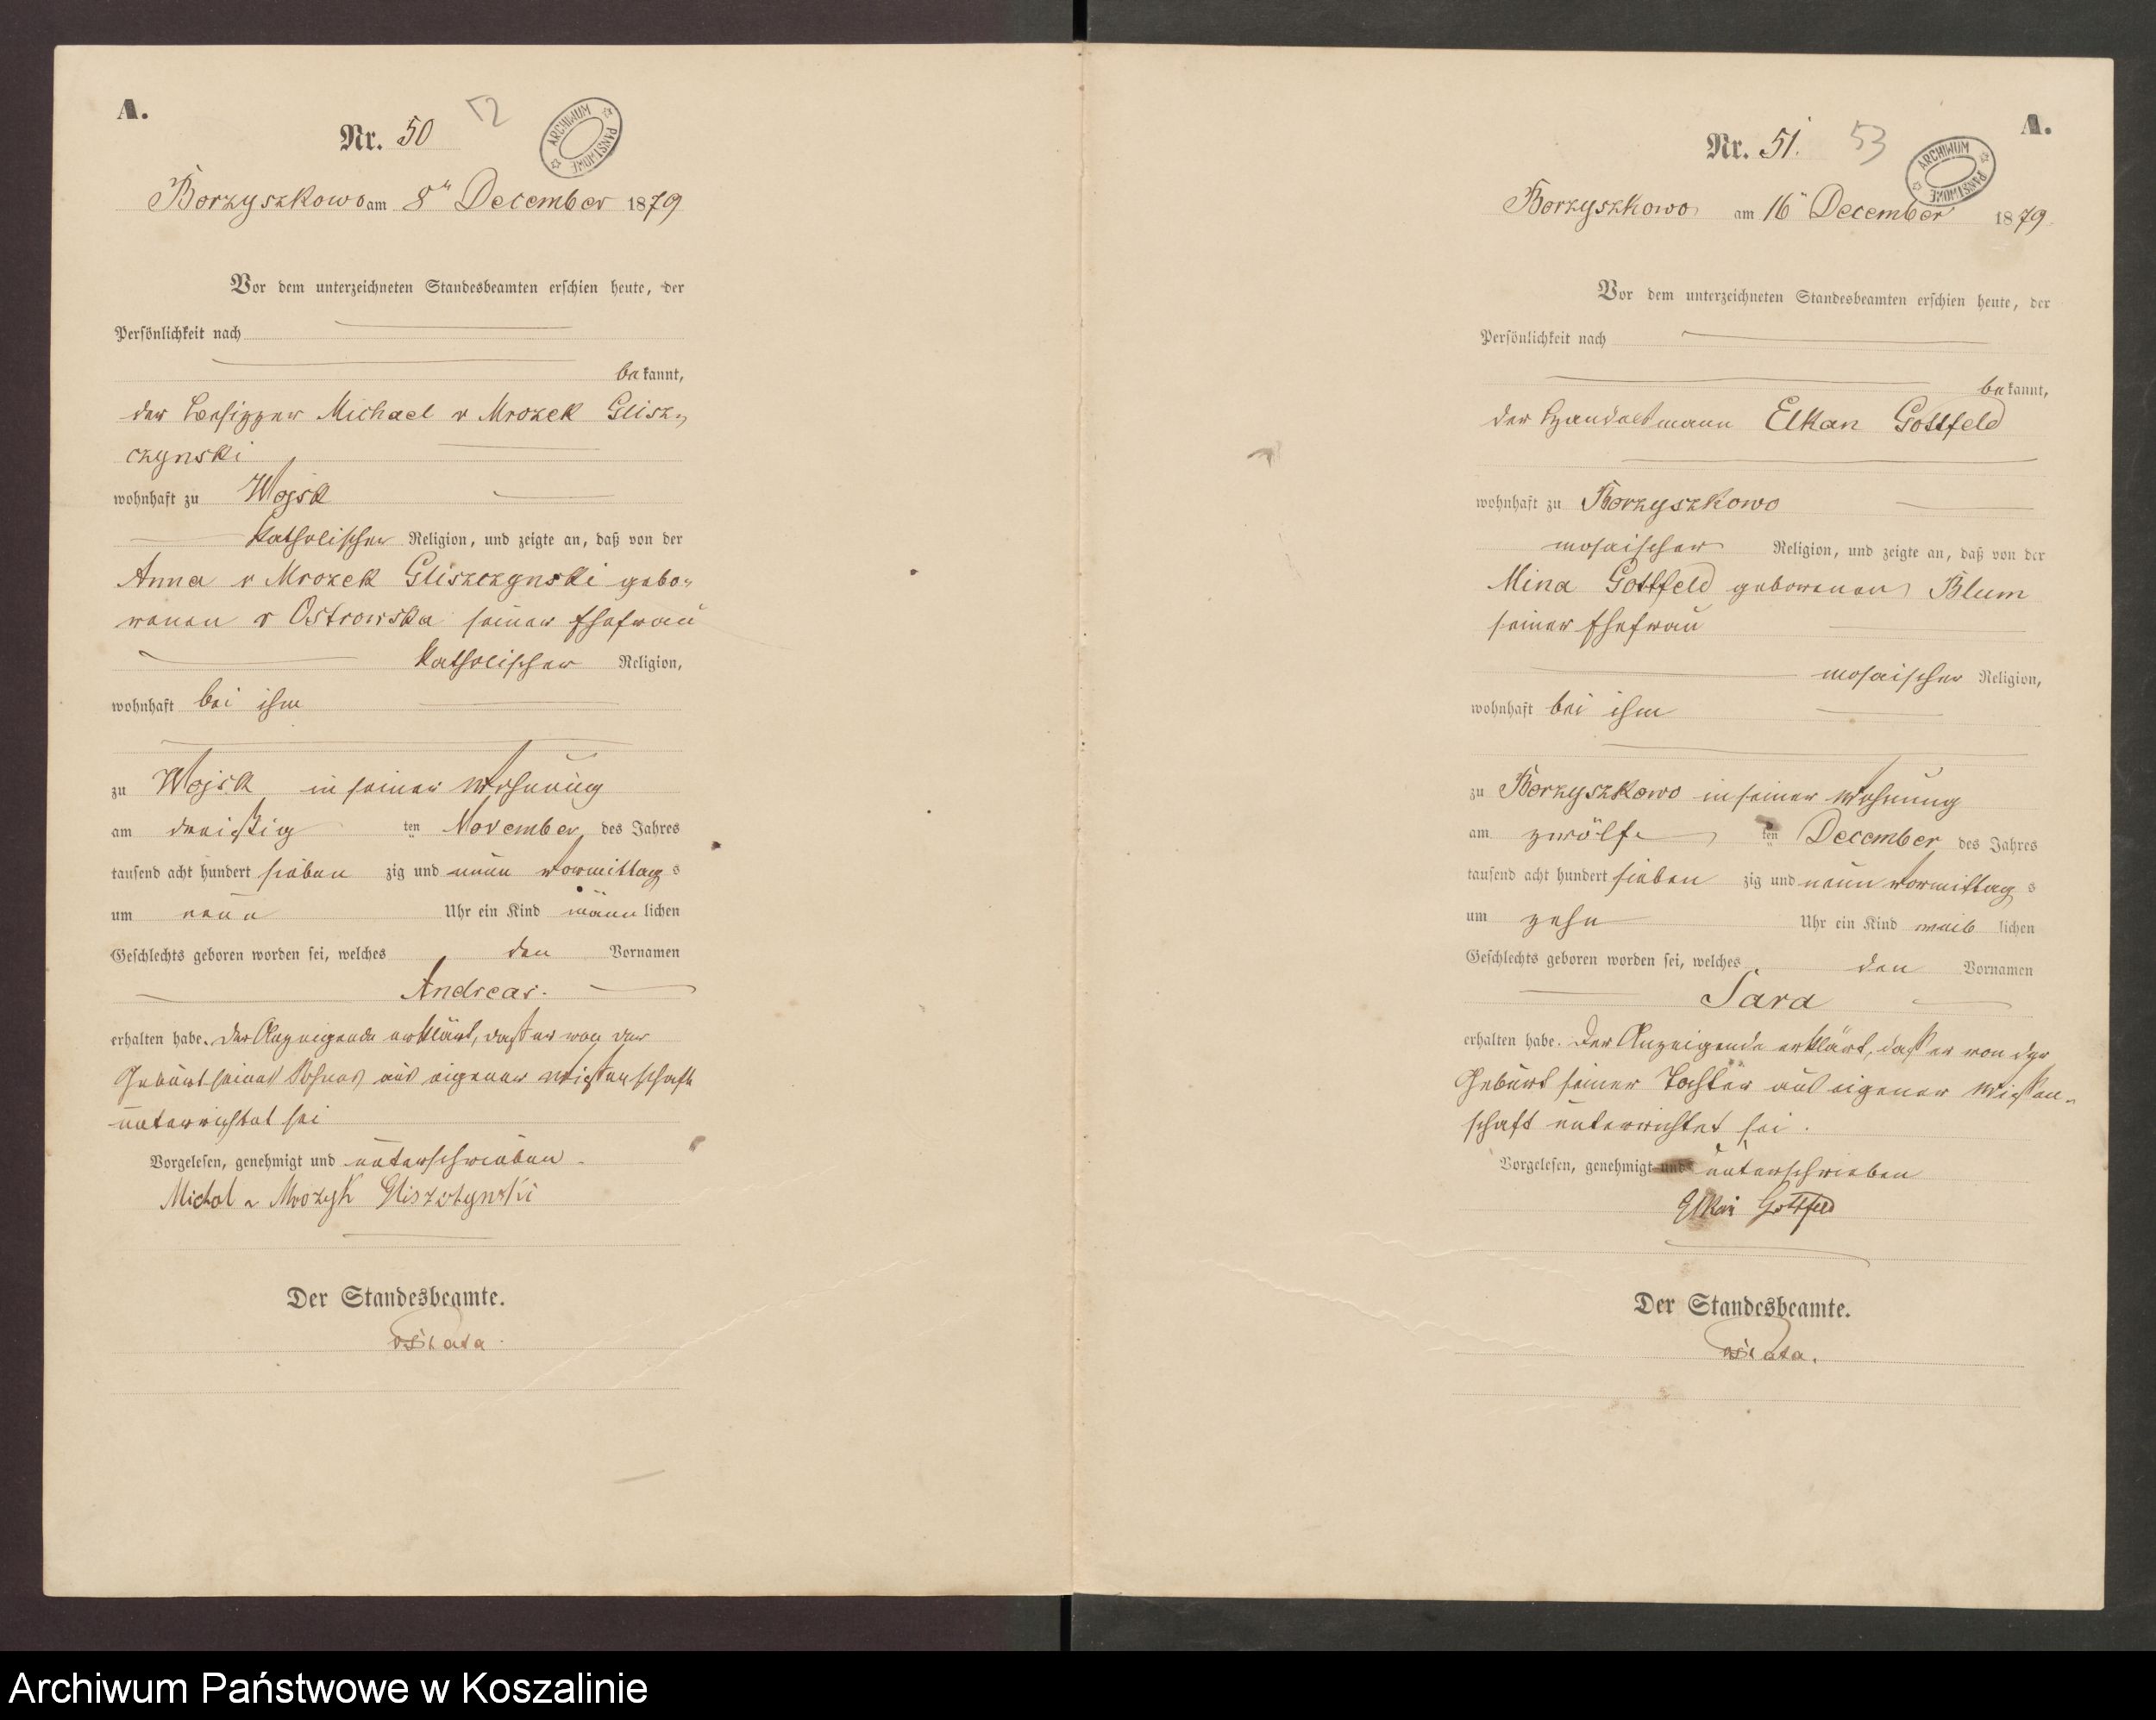 A.
Nr. 50
52
ARCHIWUM PAŃSTWOWE
Borzyszkowo am 8ᵗ December 1879
Vor dem unterzeichneten Standesbeamten erschien heute, der
Persönlichkeit nach
bekannt,
der Besitzer Michael v Mrozek Glisz-
czynski
wohnhaft zu Wojsk
katholischer Religion, und zeigte an, daß von der
Anna v Mrozek Gliszczynski gebo-
renen v Ostrowska seiner Ehefrau
katholischer Religion,
wohnhaft bei ihm
zu Wojsk in seiner Wohnung
am dreißig ten November des Jahres
tausend acht hundert sieben zig und neun Vormittags
um neun Uhr ein Kind männlichen
Geschlechts geboren worden sei, welches den Vornamen
Andreas.
erhalten habe. Der Anzeigende erklärt, daß er von der
Geburt seines Sohnes aus eigener Wißenschaft
unterrichtet sei
Vorgelesen, genehmigt und unterschrieben
Michal v Mrozyk Gliszczynski
Der Standesbeamte.
A.
Nr. 51.
53
ARCHIWUM PAŃSTWOWE
Borzyszkowo am 16ᵗ December 1879.
Vor dem unterzeichneten Standesbeamten erschien heute, der
Persönlichkeit nach
bekannt,
der Handelsmann Elkan Gottfeld
wohnhaft zu Borzyszkowo
mosaischer Religion, und zeigte an, daß von der
Mina Gottfeld geborenen Blum
seiner Ehefrau
mosaischer Religion,
wohnhaft bei ihm
zu Borzyszkowo in seiner Wohnung
am zwölf ten December des Jahres
tausend acht hundert sieben zig und neun Vormittags
um zehn Uhr ein Kind weiblichen
Geschlechts geboren worden sei, welches den Vornamen
Sara
erhalten habe. Der Anzeigende erklärt, daß er von der
Geburt seiner Tochter aus eigener Wißen-
schaft unterrichtet sei.
Vorgelesen, genehmigt und unterschrieben
Elkan Gottfeld
Der Standesbeamte.
Archiwum Państwowe w Koszalinie